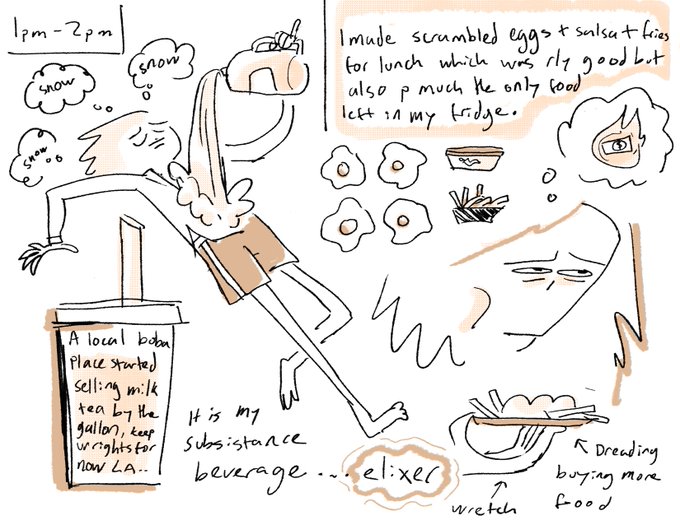 1pm-2pm
snow
snow
snow
I made scrambled eggs + salsa + fries
for lunch which was rly good but
also p much the only food
left in my fridge.
A local boba
place started
selling milk
tea by the
gallon, keep
ur rights for
now LA..
It is my
subsistance
beverage... elixer
wretch
Dreading
buying more
food